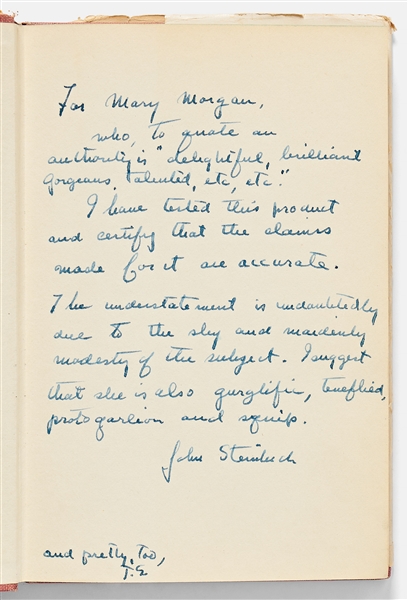 For Mary Morgan,
who, to quote an
authority is "delightful, brilliant
gorgeous, talented, etc, etc."
I have tested this product
and certify that the claims
made for it are accurate.
The understatement is undoubtedly
due to the shy and maidenly
modesty of the subject. I suggest
that she is also gurglific,
and squip.
John Steinbeck
and pretty, too,